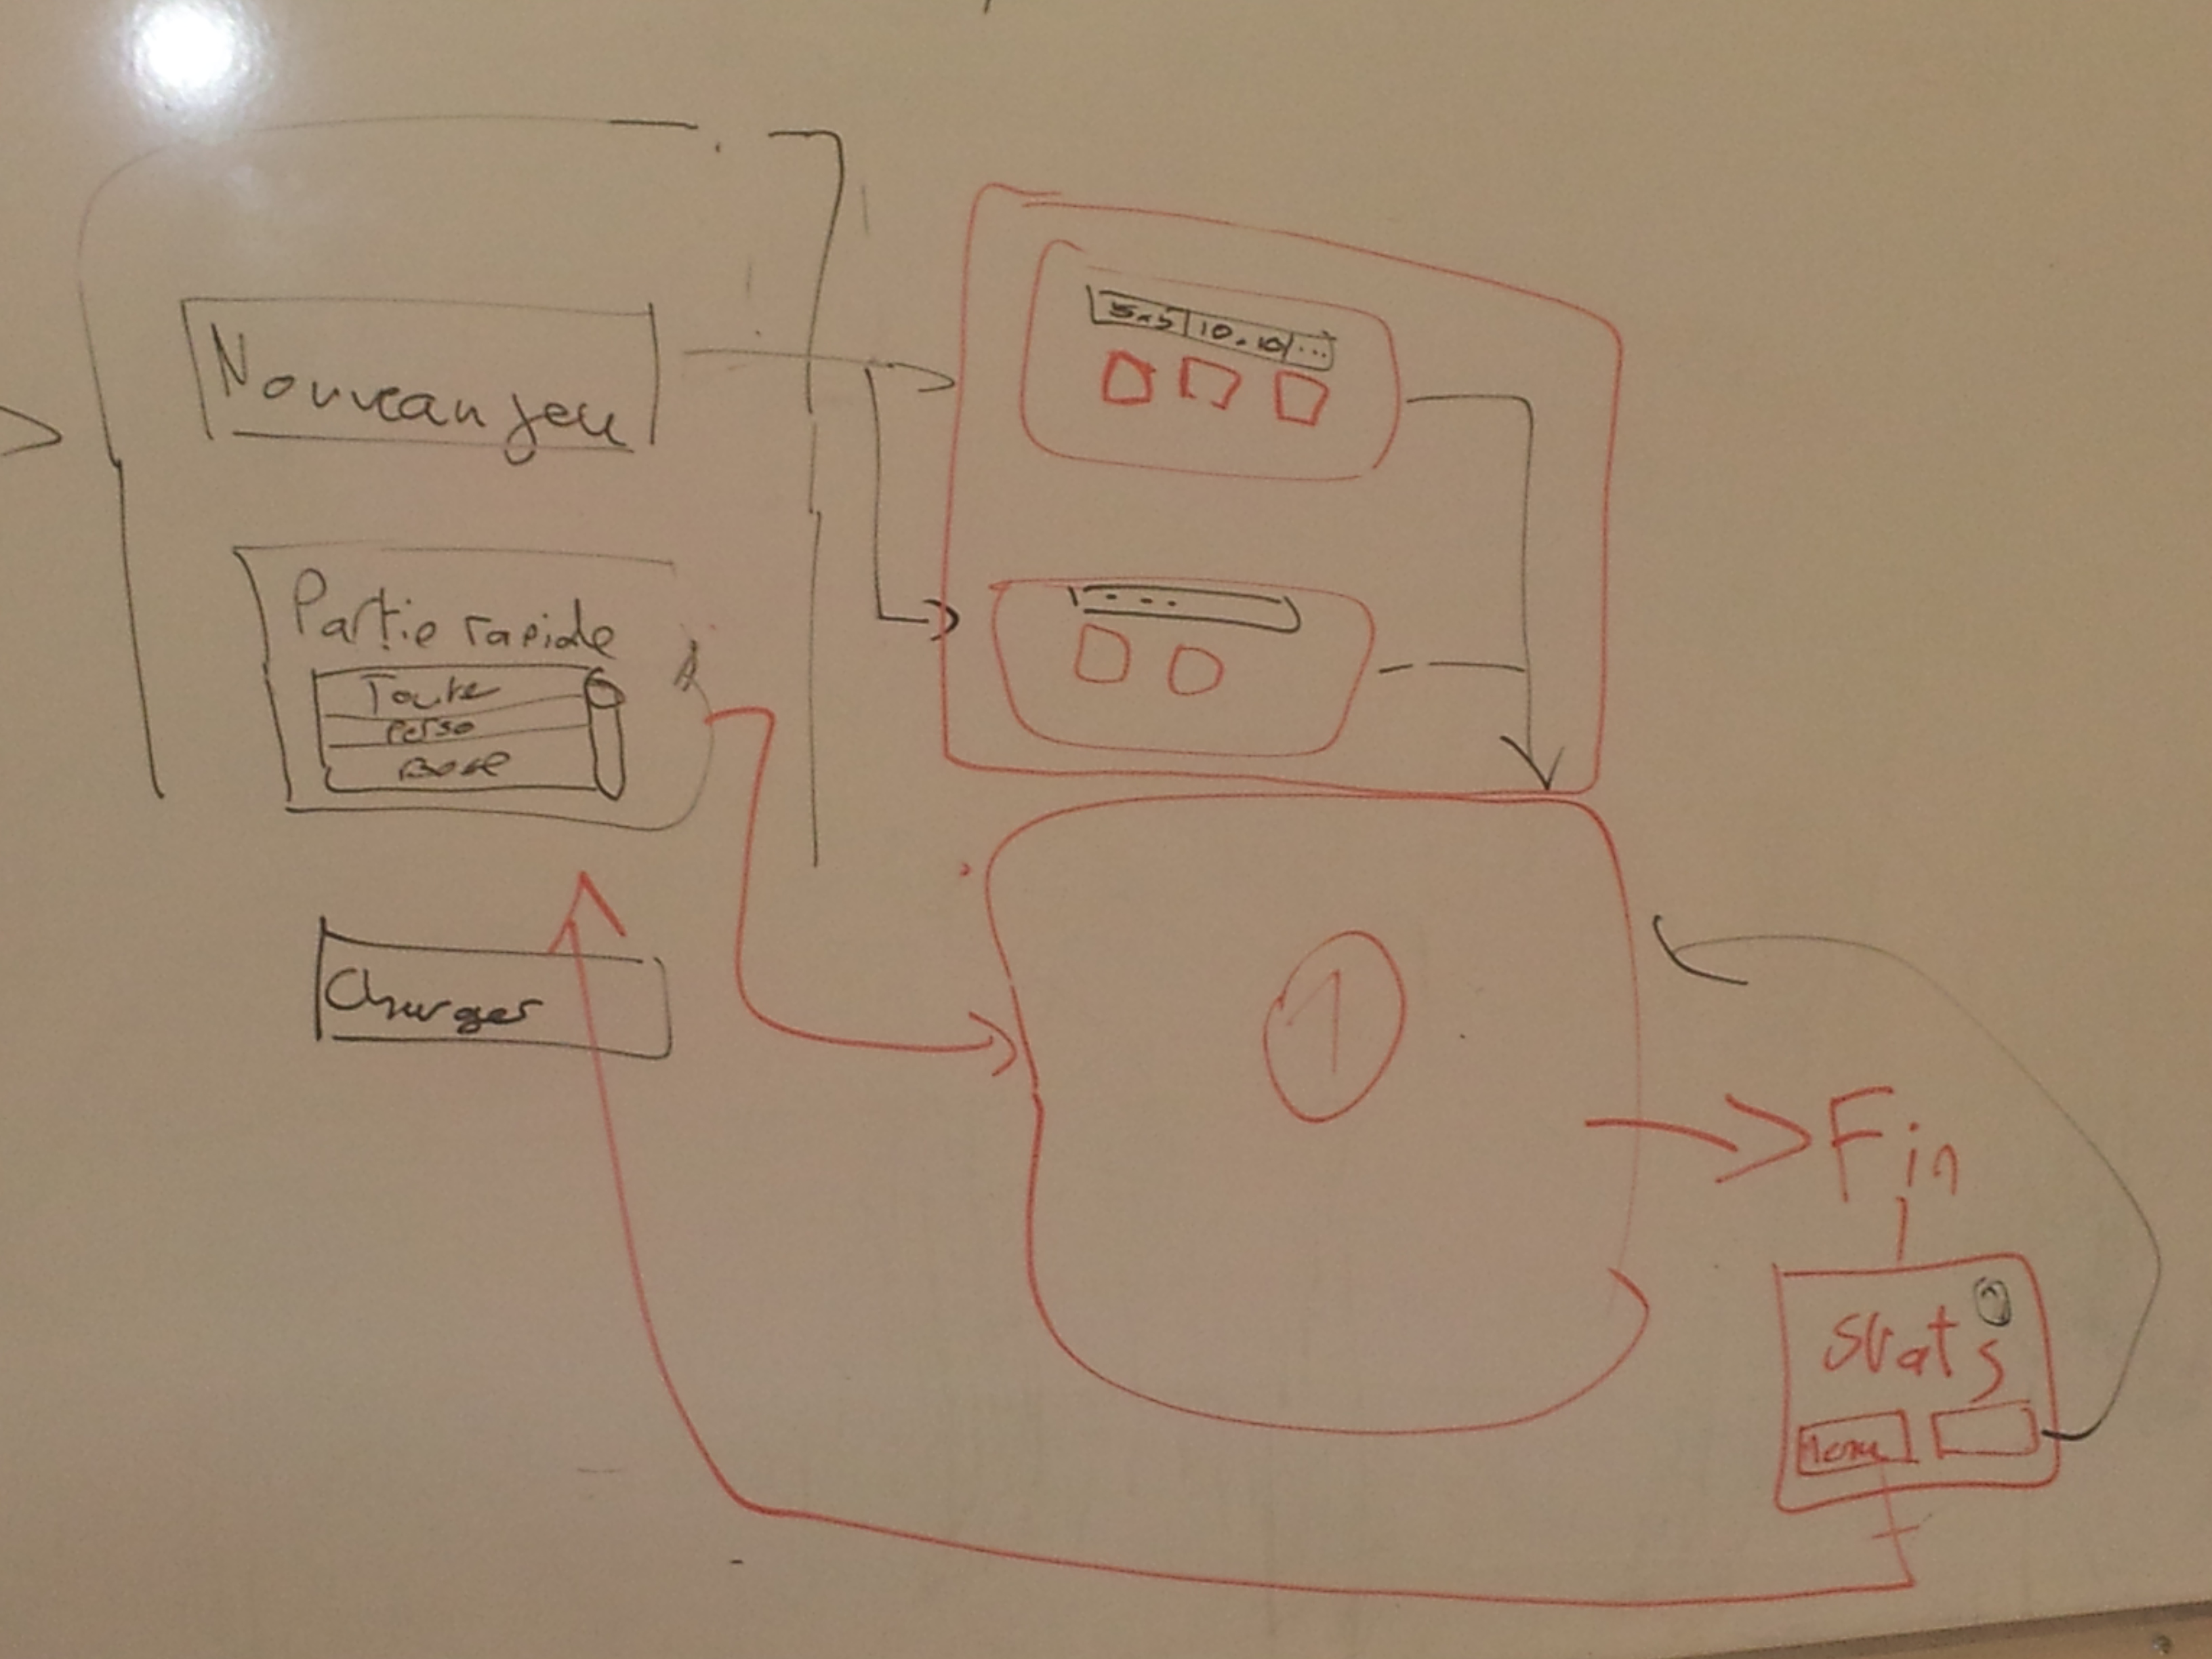 Nouveau jeu
Partie rapide
Toute
Perso
Base
Charger
5x5 | 10x10 | ...
...
1
Fin
Stats
Menu